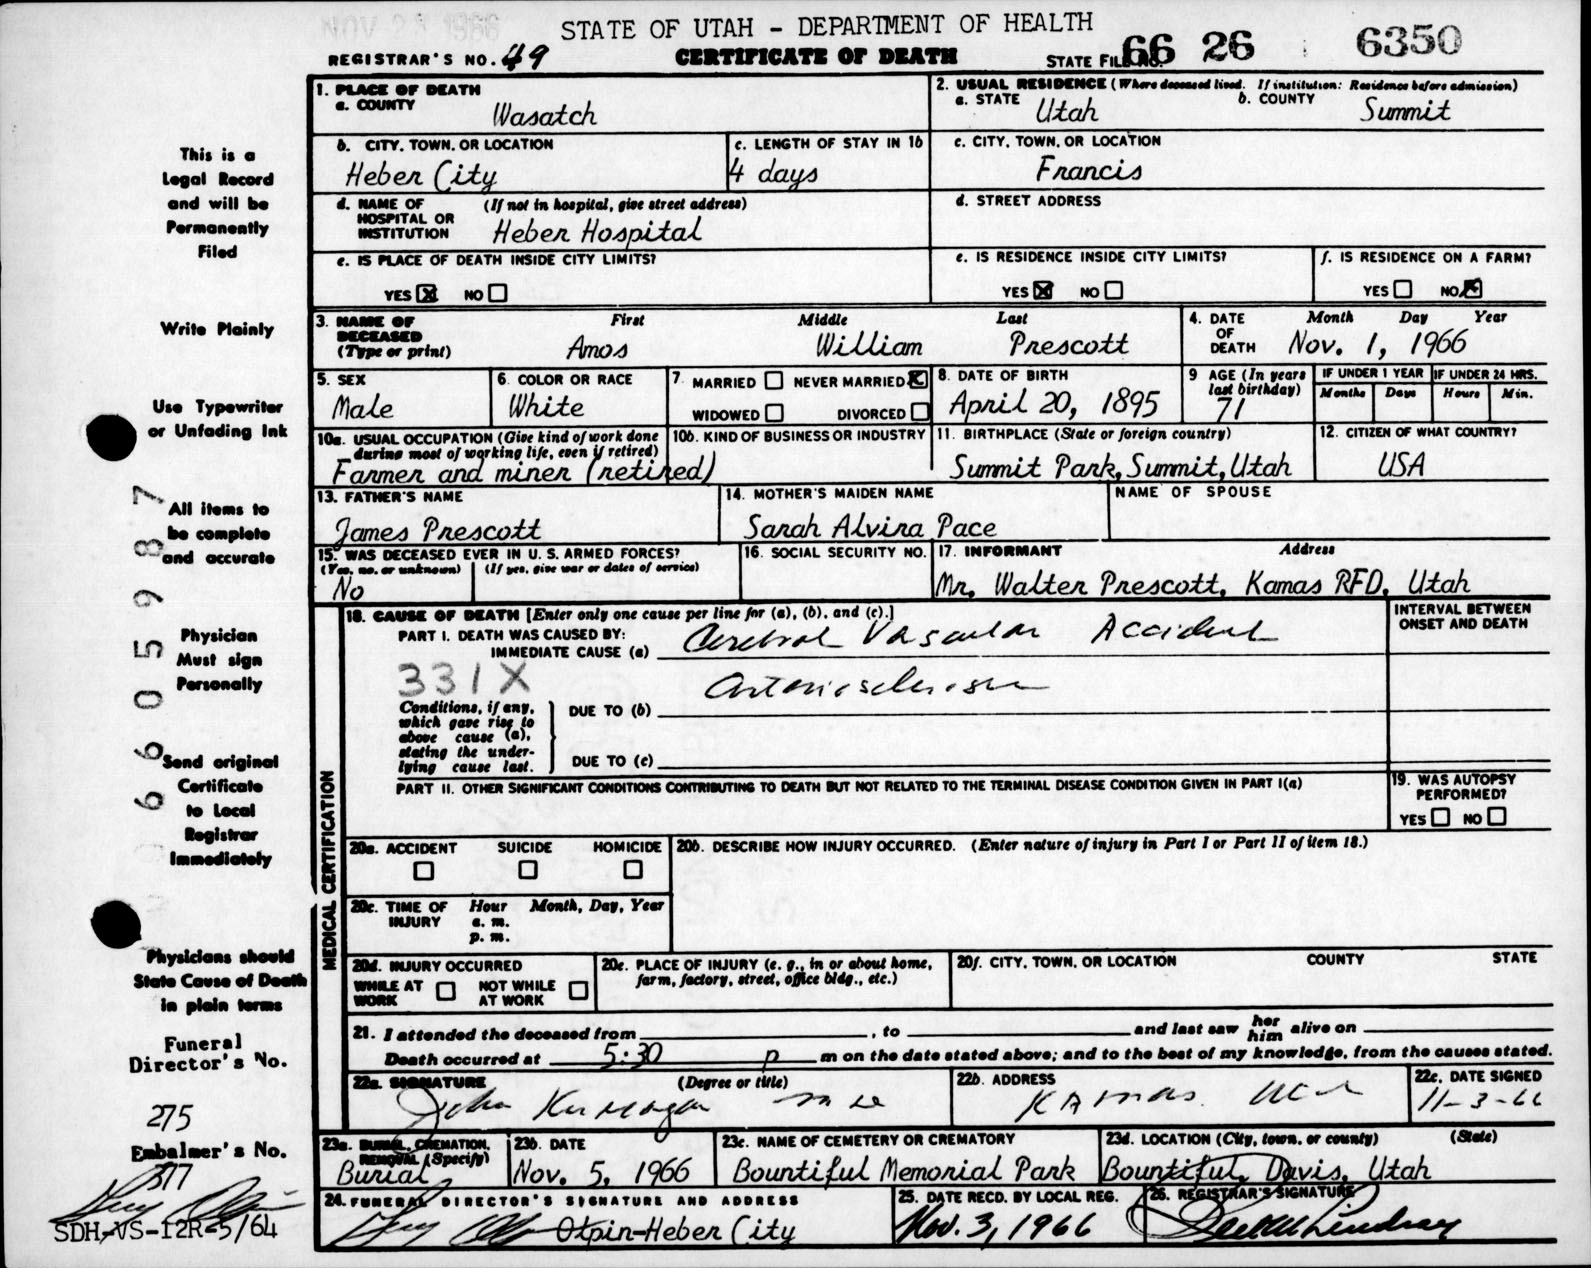 NOV 23 1966
STATE OF UTAH - DEPARTMENT OF HEALTH
REGISTRAR'S NO. 49 CERTIFICATE OF DEATH STATE FILE NO. 66 26 6350
1. PLACE OF DEATH
a. COUNTY Wasatch
2. USUAL RESIDENCE (Where deceased lived. If institution: Residence before admission)
a. STATE Utah b. COUNTY Summit
b. CITY, TOWN, OR LOCATION Heber City
c. LENGTH OF STAY IN 1b 4 days
c. CITY, TOWN, OR LOCATION Francis
d. NAME OF HOSPITAL OR INSTITUTION (If not in hospital, give street address) Heber Hospital
d. STREET ADDRESS
e. IS PLACE OF DEATH INSIDE CITY LIMITS?
YES ☒ NO ☐
e. IS RESIDENCE INSIDE CITY LIMITS?
YES ☒ NO ☐
f. IS RESIDENCE ON A FARM?
YES ☐ NO ☒
3. NAME OF DECEASED (Type or print) First Middle Last
Amos William Prescott
4. DATE OF DEATH Month Day Year
Nov. 1, 1966
5. SEX Male
6. COLOR OR RACE White
7. MARRIED ☐ NEVER MARRIED ☒
WIDOWED ☐ DIVORCED ☐
8. DATE OF BIRTH April 20, 1895
9 AGE (In years last birthday) 71
IF UNDER 1 YEAR Months Days
IF UNDER 24 HRS. Hours Min.
10a. USUAL OCCUPATION (Give kind of work done during most of working life, even if retired)
Farmer and miner (retired)
10b. KIND OF BUSINESS OR INDUSTRY
11. BIRTHPLACE (State or foreign country)
Summit Park, Summit, Utah
12. CITIZEN OF WHAT COUNTRY?
USA
13. FATHER'S NAME
James Prescott
14. MOTHER'S MAIDEN NAME
Sarah Alvira Pace
NAME OF SPOUSE
15. WAS DECEASED EVER IN U. S. ARMED FORCES?
(Yes, no, or unknown) (If yes, give war or dates of service)
No
16. SOCIAL SECURITY NO.
17. INFORMANT Address
Mr. Walter Prescott, Kamas RFD, Utah
MEDICAL CERTIFICATION
18. CAUSE OF DEATH [Enter only one cause per line for (a), (b), and (c).]
PART I. DEATH WAS CAUSED BY:
IMMEDIATE CAUSE (a) Cerebral Vascular Accident
331X
Conditions, if any, which gave rise to above cause (a), stating the underlying cause last.
DUE TO (b) Arteriosclerosis
DUE TO (c)
INTERVAL BETWEEN ONSET AND DEATH
PART II. OTHER SIGNIFICANT CONDITIONS CONTRIBUTING TO DEATH BUT NOT RELATED TO THE TERMINAL DISEASE CONDITION GIVEN IN PART I(a)
19. WAS AUTOPSY PERFORMED?
YES ☐ NO ☐
20a. ACCIDENT SUICIDE HOMICIDE
☐ ☐ ☐
20b. DESCRIBE HOW INJURY OCCURRED. (Enter nature of injury in Part I or Part II of item 18.)
20c. TIME OF INJURY Hour Month, Day, Year
a. m.
p. m.
20d. INJURY OCCURRED
WHILE AT WORK ☐ NOT WHILE AT WORK ☐
20e. PLACE OF INJURY (e. g., in or about home, farm, factory, street, office bldg., etc.)
20f. CITY, TOWN, OR LOCATION COUNTY STATE
21. I attended the deceased from , to and last saw her him alive on
Death occurred at 5:30 p m on the date stated above; and to the best of my knowledge, from the causes stated.
22a. SIGNATURE (Degree or title)
John
22b. ADDRESS
Kamas Utah
22c. DATE SIGNED
11-3-66
23a. BURIAL, CREMATION, REMOVAL (Specify)
Burial
23b. DATE
Nov. 5, 1966
23c. NAME OF CEMETERY OR CREMATORY
Bountiful Memorial Park
23d. LOCATION (City, town, or county) (State)
Bountiful, Davis, Utah
24. FUNERAL DIRECTOR'S SIGNATURE AND ADDRESS
Olpin-Heber City
25. DATE RECD. BY LOCAL REG.
Nov. 3, 1966
26. REGISTRAR'S SIGNATURE
Lindsay
This is a
Legal Record
and will be
Permanently
Filed
Write Plainly
Use Typewriter
or Unfading Ink
All items to
be complete
and accurate
Physician
Must sign
Personally
Send original
Certificate
to Local
Registrar
Immediately
Physicians should
State Cause of Death
in plain terms
Funeral
Director's No.
275
Embalmer's No.
377
SDH-VS-12R-5/64
6605987